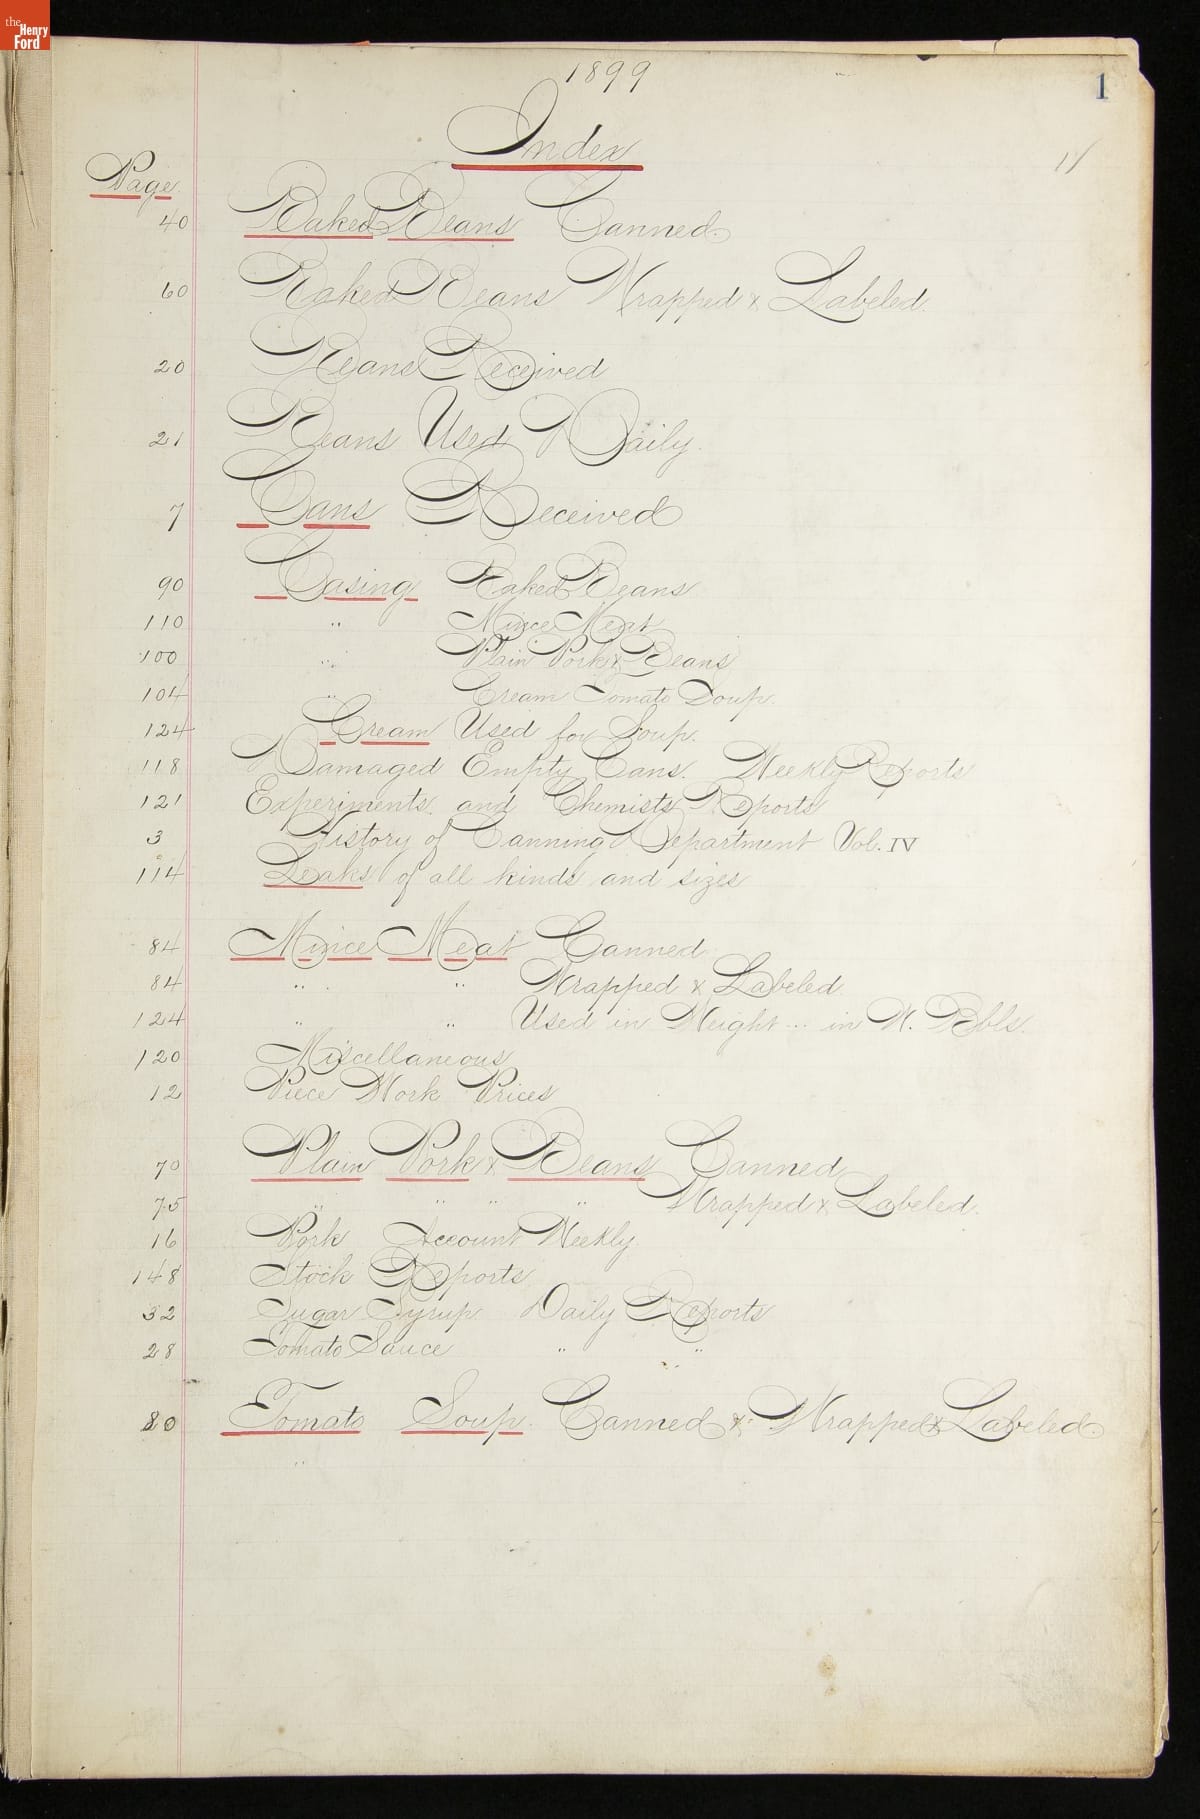 the Henry Ford
1899
1
Index
Page
40 Baked Beans Canned.
60 Baked Beans Wrapped & Labeled.
20 Beans Received
21 Beans Used Daily.
7 Cans Received
90 Casing Baked Beans
110 " Mince Meat
100 " Plain Pork & Beans
104 " Cream Tomato Soup.
124 Cream Used for Soup.
118 Damaged Empty Cans. Weekly Reports
121 Experiments and Chemists Reports
3 History of Canning Department Vol. IV
114 Leaks of all kinds and sizes
84 Mince Meat Canned
84 " " Wrapped & Labeled
124 " " Used in Weight ... in W. Bbls.
120 Miscellaneous
12 Piece Work Prices
70 Plain Pork & Beans Canned
75 " " " " Wrapped & Labeled.
16 Pork Account Weekly.
148 Stock Reports
32 Sugar Syrup. Daily Reports
28 Tomato Sauce " "
80 Tomato Soup. Canned & Wrapped & Labeled.